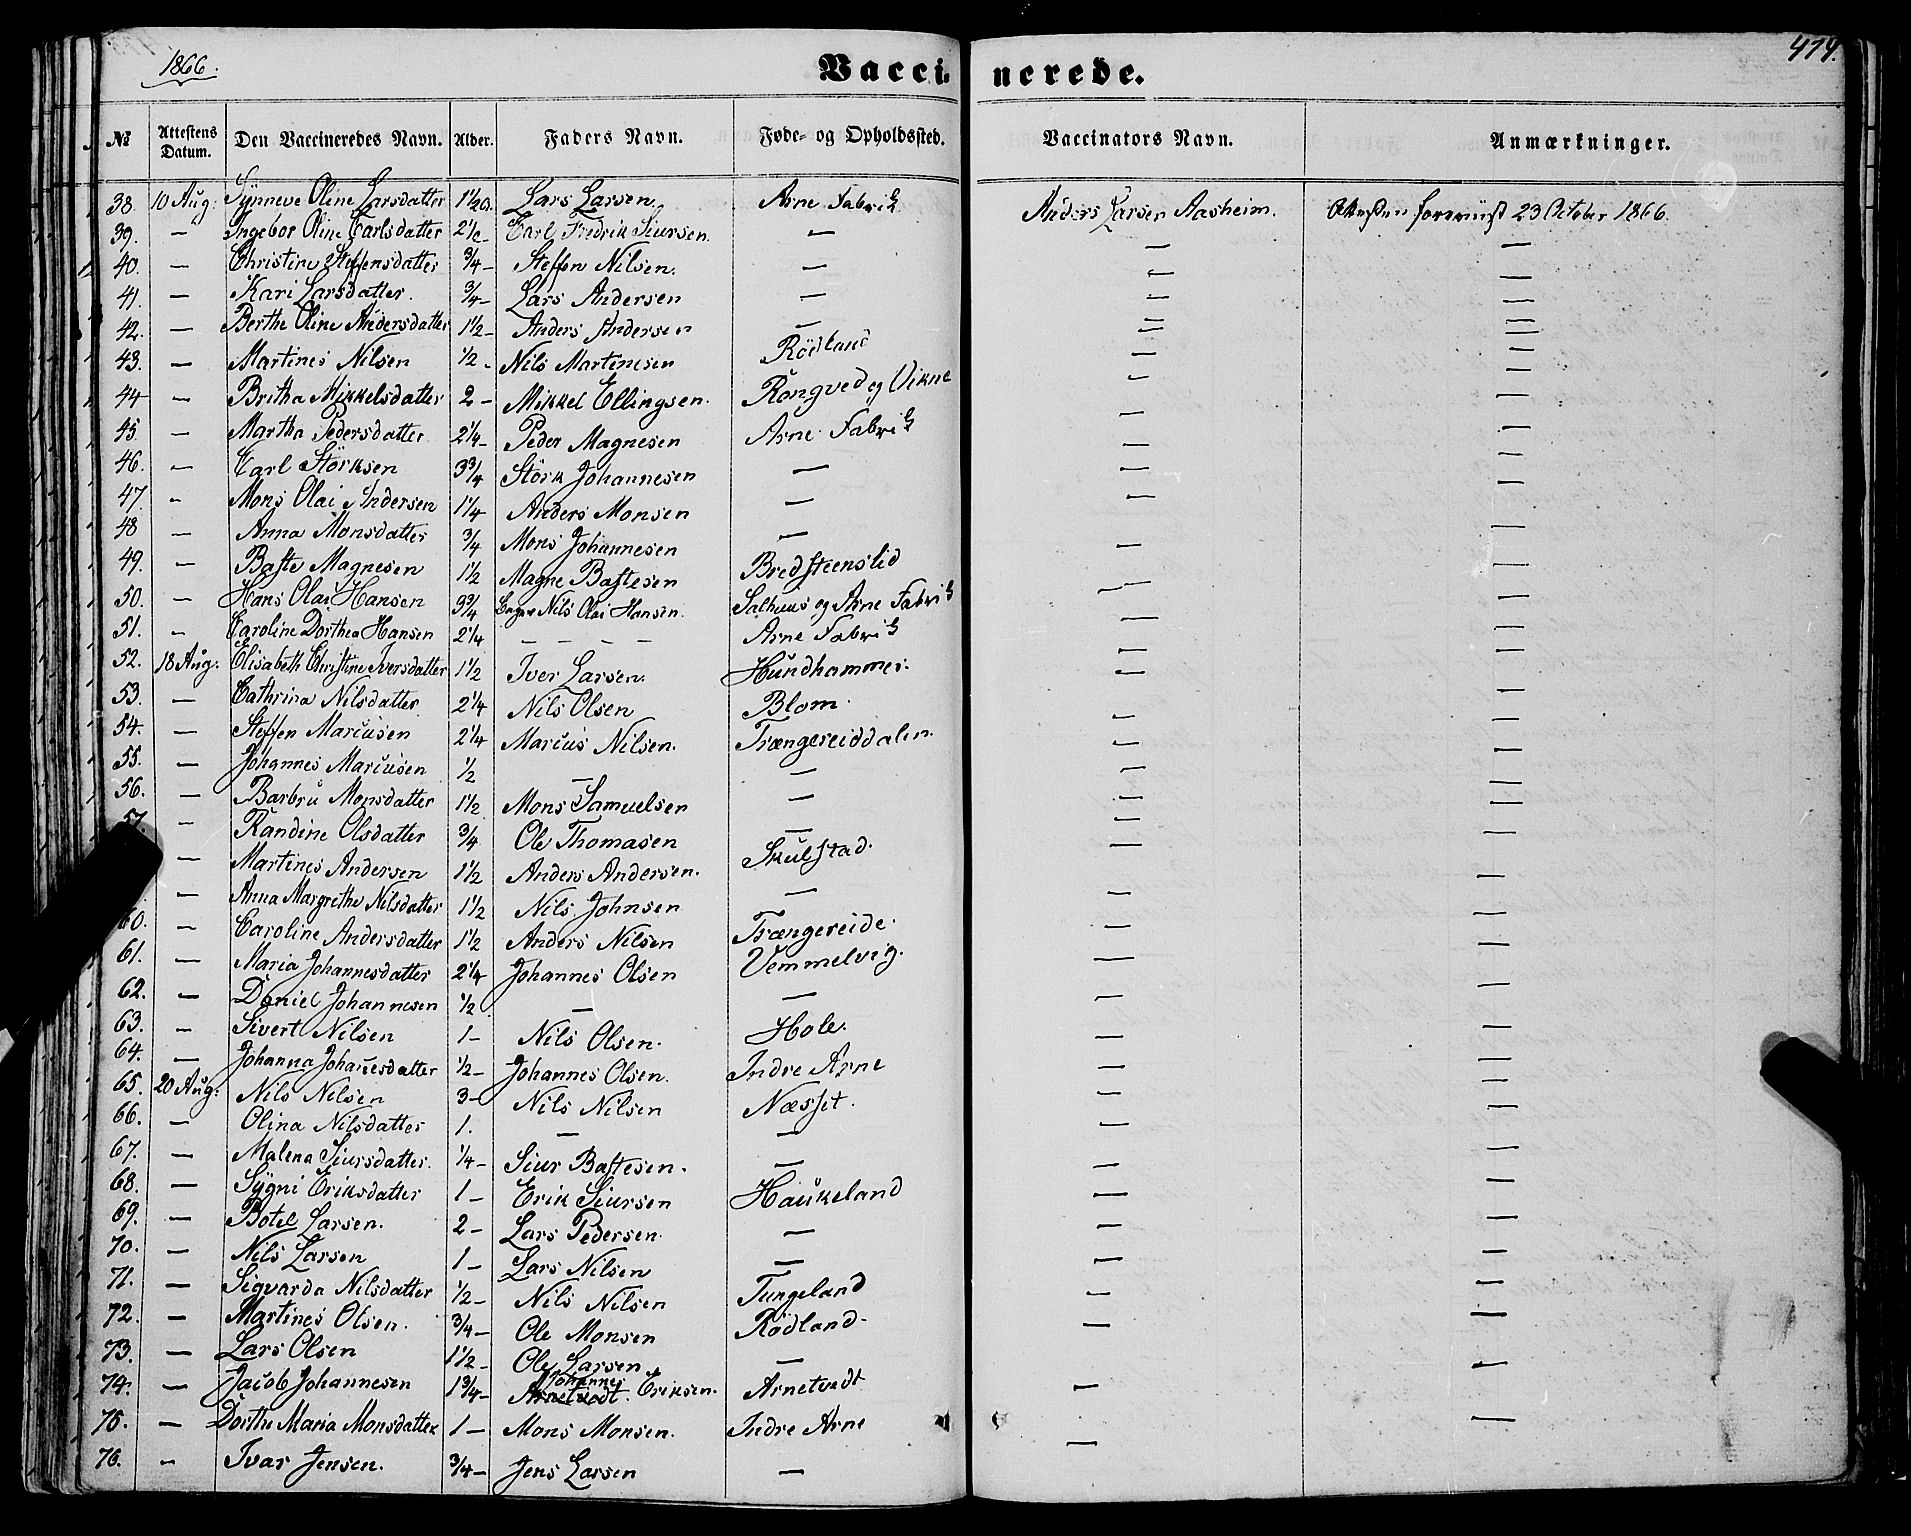 1866.
Vaccinerede.
474.
№ Attestens Datum. Den Vaccineredes Navn. Alder. Faders Navn. Føde- og Opholdssted. Vaccinators Navn. Anmærkninger.
38. 10 Aug: Synneve Oline Larsdatter 1½ Lars Larsen. Arne Fabrik Anders Larsen Aasheim. 23 October 1866.
39. — Ingebor Oline Carlsdatter Carl Fredrik Siursen. — — —
40. — Christine Steffensdatter ¾ — Steffen Nilsen. — — —
41. — Kari Larsdatter. ¾ — Lars Andersen — — —
42. — Berthe Oline Andersdatter 1½ — Anders Andersen — — —
43. — Martines Nilsen ½ - Nils Martinesen Rödland — —
44 — Britha Mikkelsdatter 2 — Mikkel Ellingsen. Rongved og Vikne — —
45. — Martha Pedersdatter 2¼ — Peder Magnesen Arne Fabrik — —
46. — Carl Störksen 3¾ Störk Johannesen — — —
47. - Mons Olai Andersen 1¼ Anders Monsen — — —
48 — Anna Monsdatter ¾ Mons Johannesen — — —
49. — Baste Magnesen 1½ Magne Bastesen Bredsteenslid — —
50. — Hans Olai Hansen 3¾ Nils Olai Hansen. Salhuus og Arne Fabrik — —
51. - Caroline Dorthea Hansen 2¼ — — — — Arne Fabrik — —
52. 18 Aug: Elisabeth Christine Iversdatter 1½ Iver Larsen. Hundhammer. — —
53. — Cathrina Nilsdatter 2¼ Nils Olsen Blom. — —
54. — Steffen Mariusen 2¼ Marius Nilsen. Trængereiddalen. — —
55. — Johannes Mariusen ½ — — — —
56. — Barbru Monsdatter 1½ Mons Samuelsen — — —
57. — Randine Olsdatter ¾ Ole Thomasen — — —
— Martines Andersen 1½ Anders Andersen. Skulstad. — —
— Anna Margrethe Nilsdatter 1½ Nils Johnsen — — —
60. — Caroline Andersdatter 1½ Anders Nilsen Trængereide. — —
61. — Maria Johannesdatter 2¼ Johannes Olsen Vemmelvig. — —
62. — Daniel Johannesen ½ — — — —
63. — Sivert Nilsen 1 — Nils Olsen. Hole. — —
64. — Johanna Johanesdatter ½ — Johannes Olsen. Indre Arne — —
65. 20 Aug: Nils Nilsen 3 — Nils Nilsen Næsset. — —
66. — Olina Nilsdatter 1. — — — —
67. — Malena Siursdatter. ¼ — Siur Bastesen. — — —
68. — Sygni Eriksdatter 1 — Erik Siursen Haukeland — —
69. — Botel Larsen. 2 — Lars Pedersen. — — —
70. — Nils Larsen 1 — Lars Nilsen — — —
71. — Sigvarda Nilsdatter ½ — Nils Nilsen Tungeland — —
72. — Martines Olsen. ¾ — Ole Monsen Rödland. — —
73. — Lars Olsen 1½ — Ole Larsen — —
74. — Jacob Johannesen 1¾ — Johannes Arnetvedt. Eriksen. Arnetvedt — —
75. — Dorthe Maria Monsdatter 1 — Mons Monsen. Indre Arne — —
76. - Ivar Jensen. ¾ — Jens Larsen —